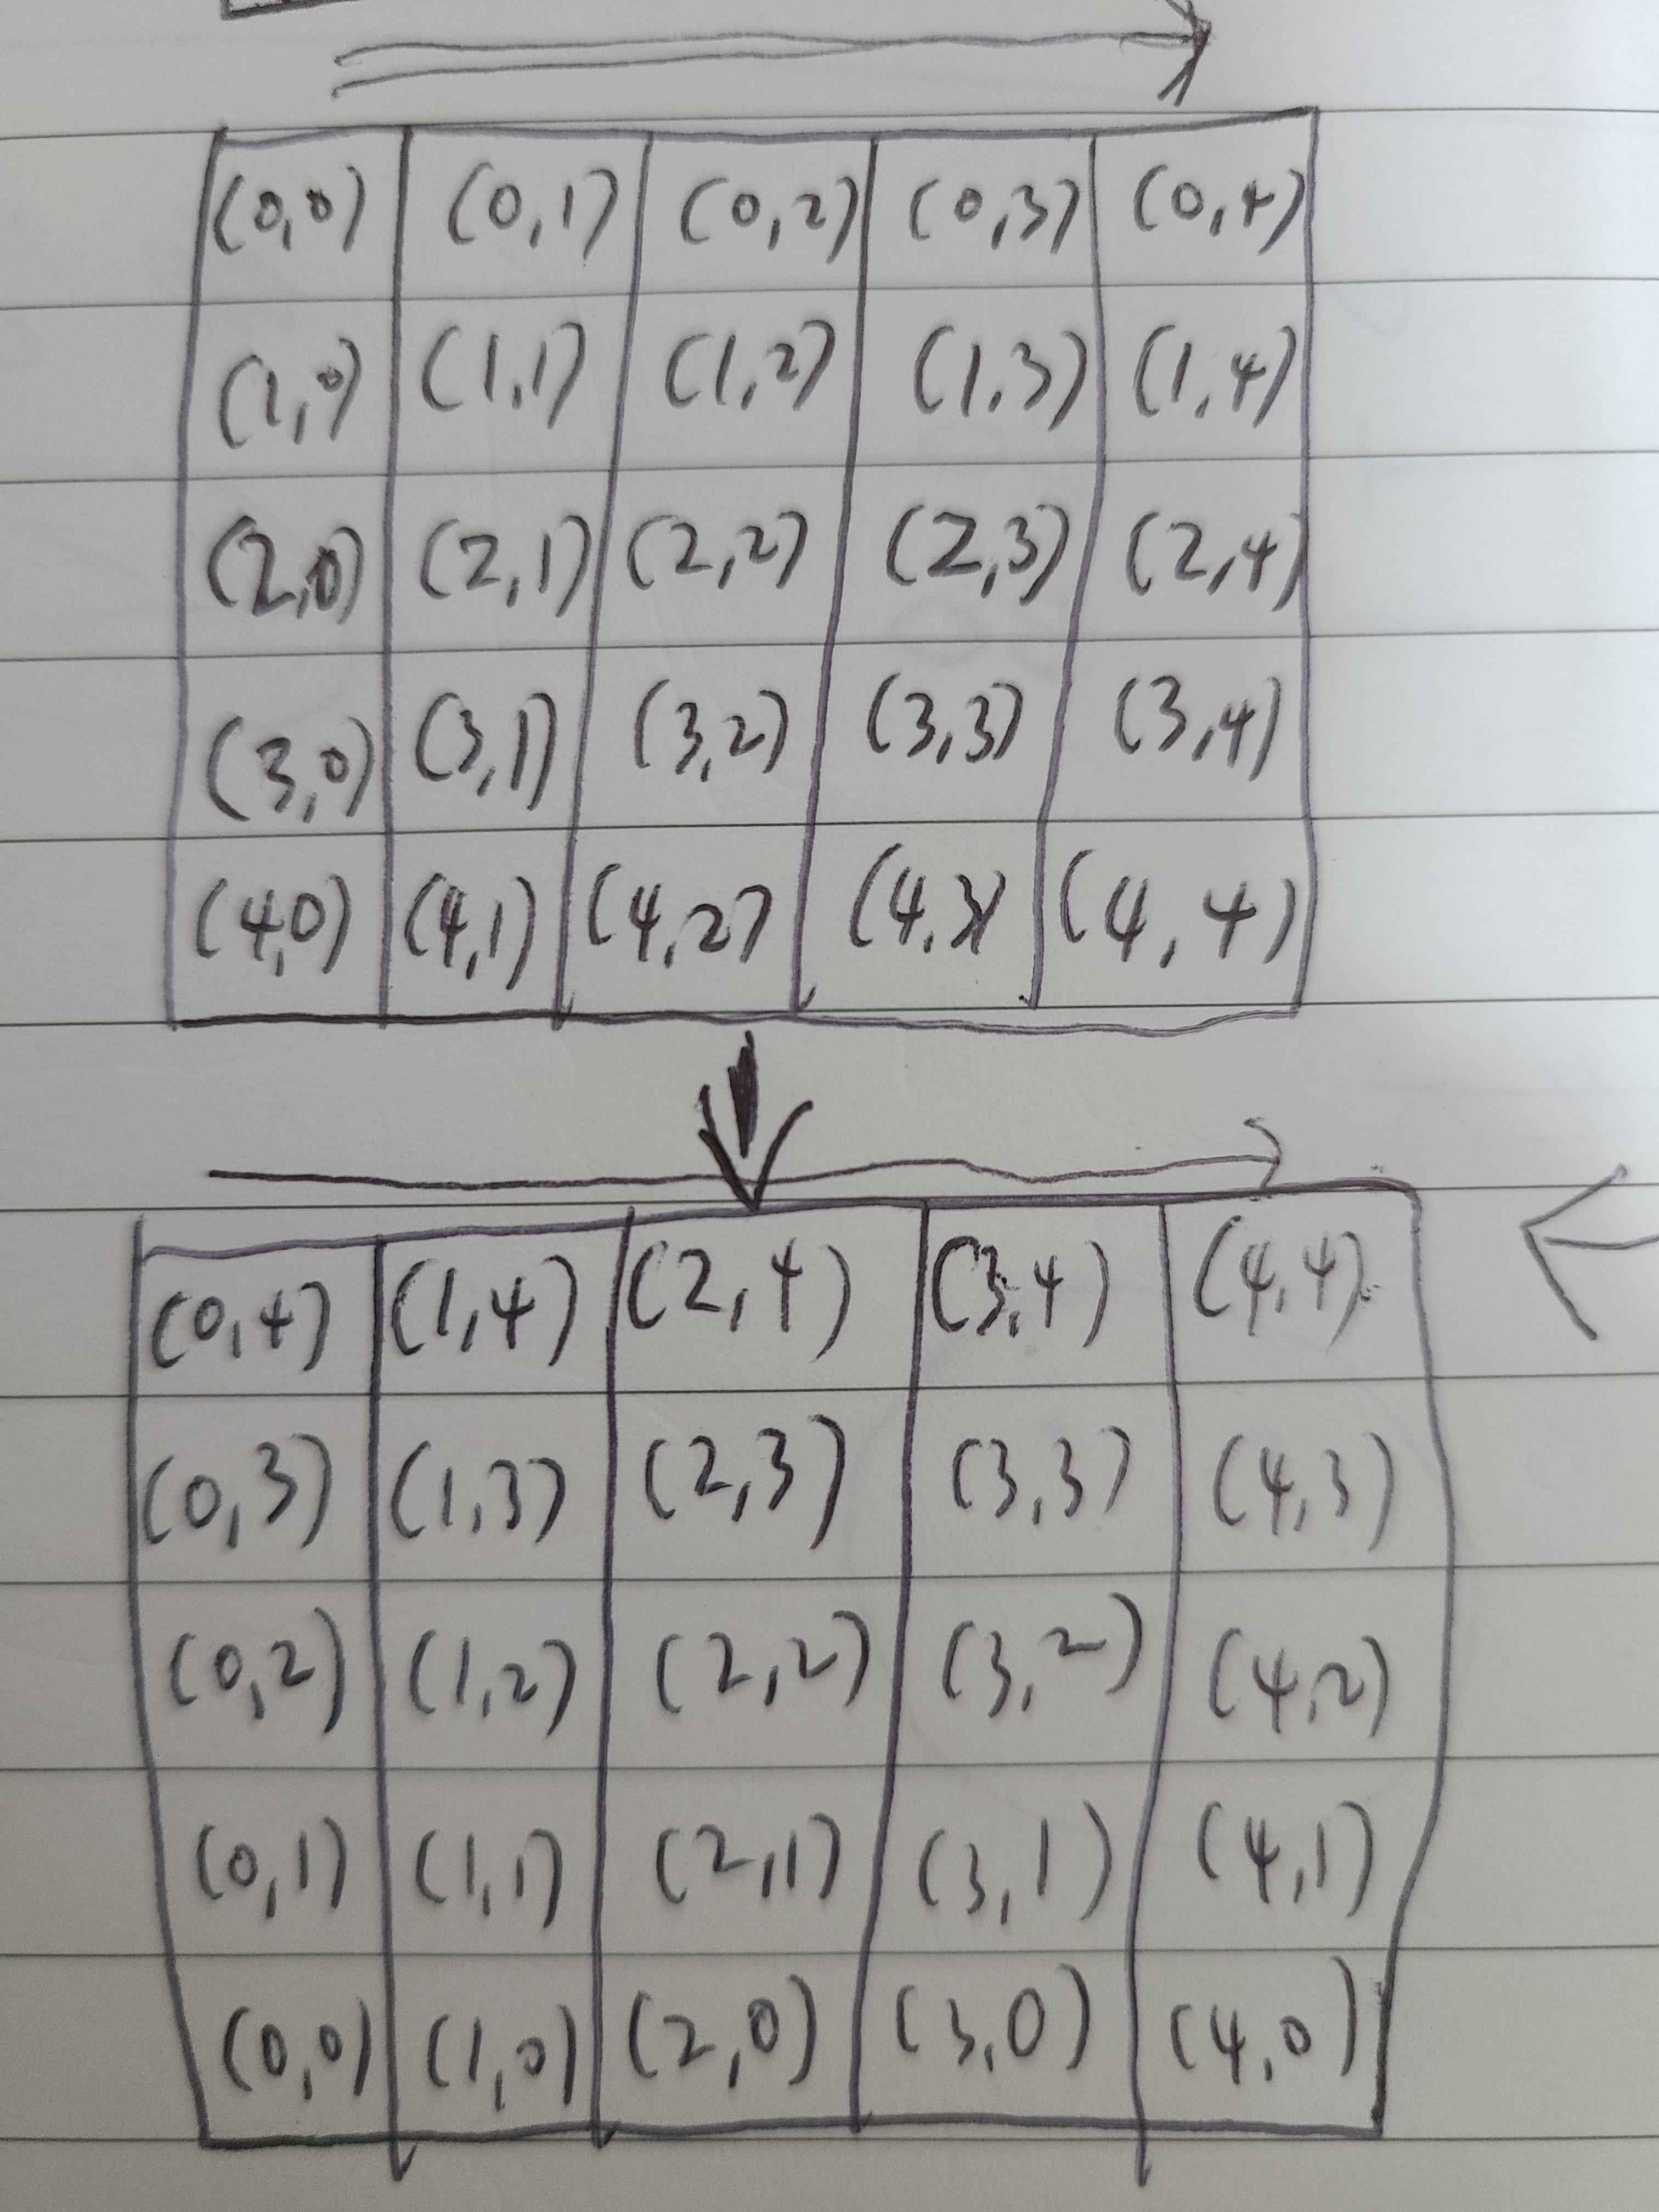 (0,0) (0,1) (0,2) (0,3) (0,4)
(1,0) (1,1) (1,2) (1,3) (1,4)
(2,0) (2,1) (2,2) (2,3) (2,4)
(3,0) (3,1) (3,2) (3,3) (3,4)
(4,0) (4,1) (4,2) (4,3) (4,4)
(0,4) (1,4) (2,4) (3,4) (4,4)
(0,3) (1,3) (2,3) (3,3) (4,3)
(0,2) (1,2) (2,2) (3,2) (4,2)
(0,1) (1,1) (2,1) (3,1) (4,1)
(0,0) (1,0) (2,0) (3,0) (4,0)